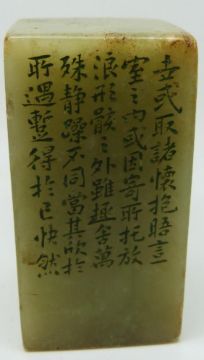 世或取諸懷抱晤言一
室之内或因寄所托放
浪形骸之外雖趣舍萬
殊静躁不同當其欣於
所遇蹔得於己快然